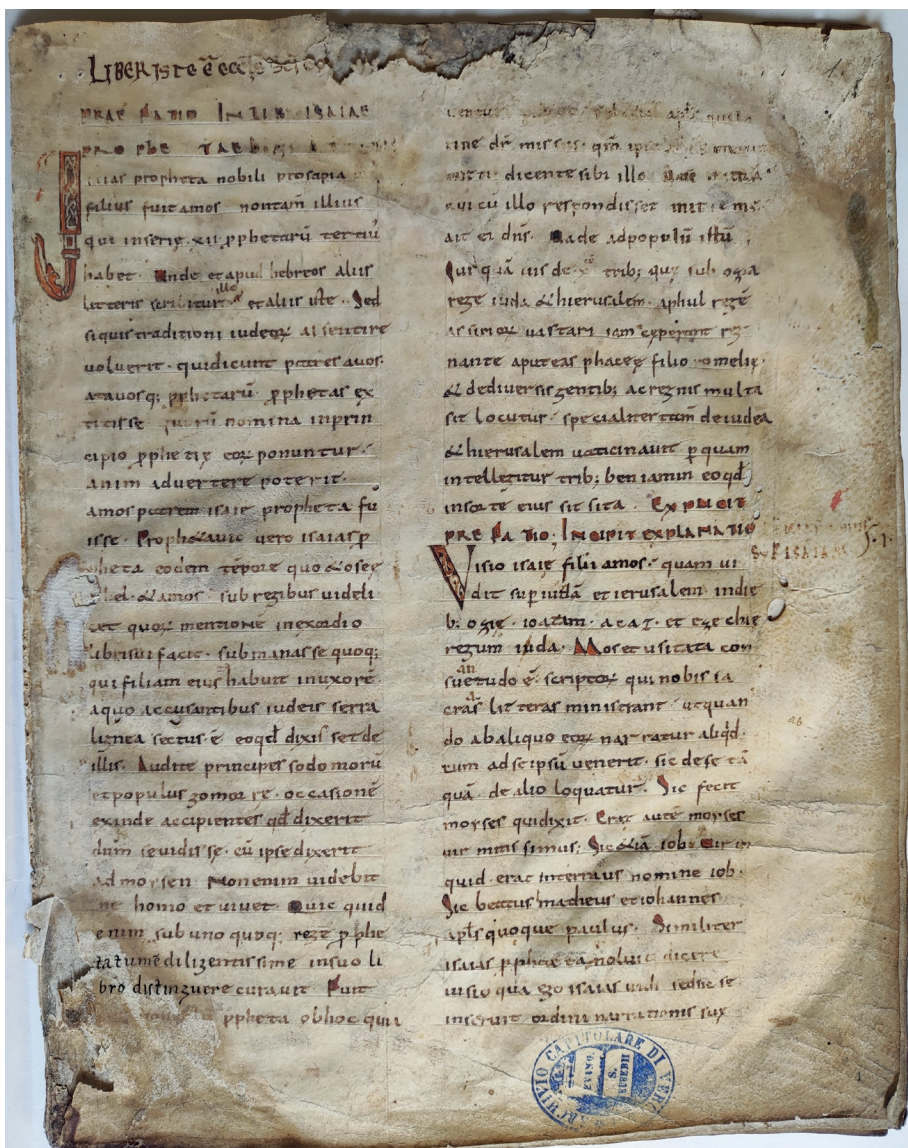 LIBER ISTE Ē ECCLE SCI
PRAEFATIO IN LIB ISAIAE
PROPHETAE
Isaias propheta nobili prosapia
filius fuit amos non tam̄ illius
qui in serie xii ꝓphetarū tertiū
habet. Unde et apud hebreos aliis
litteris scribitur ille et aliis iste. Sed
siquis traditioni iudeoꝝ adsentire
voluerit. qui dicunt patres avos.
atavosq; ꝓphetarū ꝓphetas ex
titisse quorū nomina in prin
cipio ꝓphetie eoꝝ ponuntur.
animadvertere poterit.
amos patrem isaie propheta fu
isse. Prophetavit vero isaias ꝓ
pheta eodem tēpore quo & osee
iohel. & amos. sub regibus videli
cet quoꝝ mentionē in exordio
libri sui facit. sub manasse quoq;
qui filiam eius habuit in uxorē.
a quo accusantibus iudeis serra
lignea sectus ē eo qđ dixisset de
illis. Audite principes sodomorū
et populus gomorre. occasionē
exinde accipientes qđ dixerit
dn̄m se vidisse. cū ipse dixerit
ad moysen Non enim videbit
me homo et vivet. Quic quid
enim sub uno quoq; rege ꝓphe
tatum ē diligentissime in suo li
bro distinguere curavit Fuit
ꝓpheta ob hoc quia
ventur
dn̄e missus. qm̄ ipse
mitti. dicente sibi illo Quem mittā
cui cū illo respondisset mitte me
ait ei dn̄s. Vade ad populū istū
Iusquā iis de x trib; que sub ozia
rege iuda & hierusalem. a phul rege
assirioꝝ vastari iam ceperant reg
nante aput eas phacee filio romelie.
& de diversis gentib; ac regnis multa
sit locutus. specialiter tam̄ de iudea
& hierusalem vaticinavit ꝑ quam
intellegitur trib; beniamin eo qđ
in sorte eius sit sita. EXPLICIT
PREFATIO; INCIPIT EXPLANATIO
SUP ISAIAM
Visio isaie filii amos. quam vi
dit sup iudā et ierusalem in die
b; ozie. ioatam. acaz. et ezechie
regum iuda. Mos et usitata con
suetudo ē. scriptoꝝ qui nobis sa
cras litteras ministrant. ut quan
do ab aliquo eoꝝ narratur aliqđ.
cum ad se ipsū venerit. sic de se tā
quā de alio loquatur. Sic fecit
moyses qui dixit. Erat autē moyses
vir mitissimus; Sic & iā iob. Vir in
quid. erat in terra us nomine iob.
Sic beatus matheus et iohannes
apl̄s quoque paulus. Similiter
isaias ꝓpheta noluit dicere
visio quā ego isaias vidi sed sic se
inseruit ordini narrationis sux
46
1
ARCHIVIO CAPITOLARE DI VERC
EVANG.
S. EUSEBII